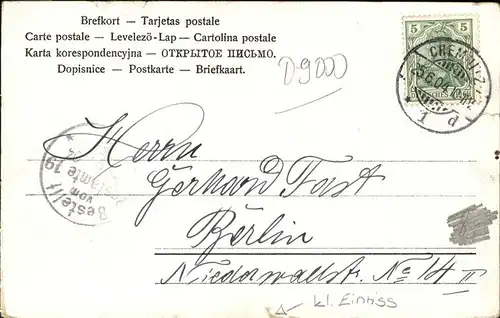 Brefkort — Tarjetas postale
Carte postale — Levelezö-Lap — Cartolina postale
Karta korespondencyjna — ОТКРЫТОЕ ПИСЬМО.
Dopisnice — Postkarte — Briefkaart.
D-9000
5 5
CHEMNITZ
1 d
Bestellt
vom
Postamte 19
Herrn
Gerhard Fast
Berlin
Niederwallstr. No 14 II
kl. Einriss